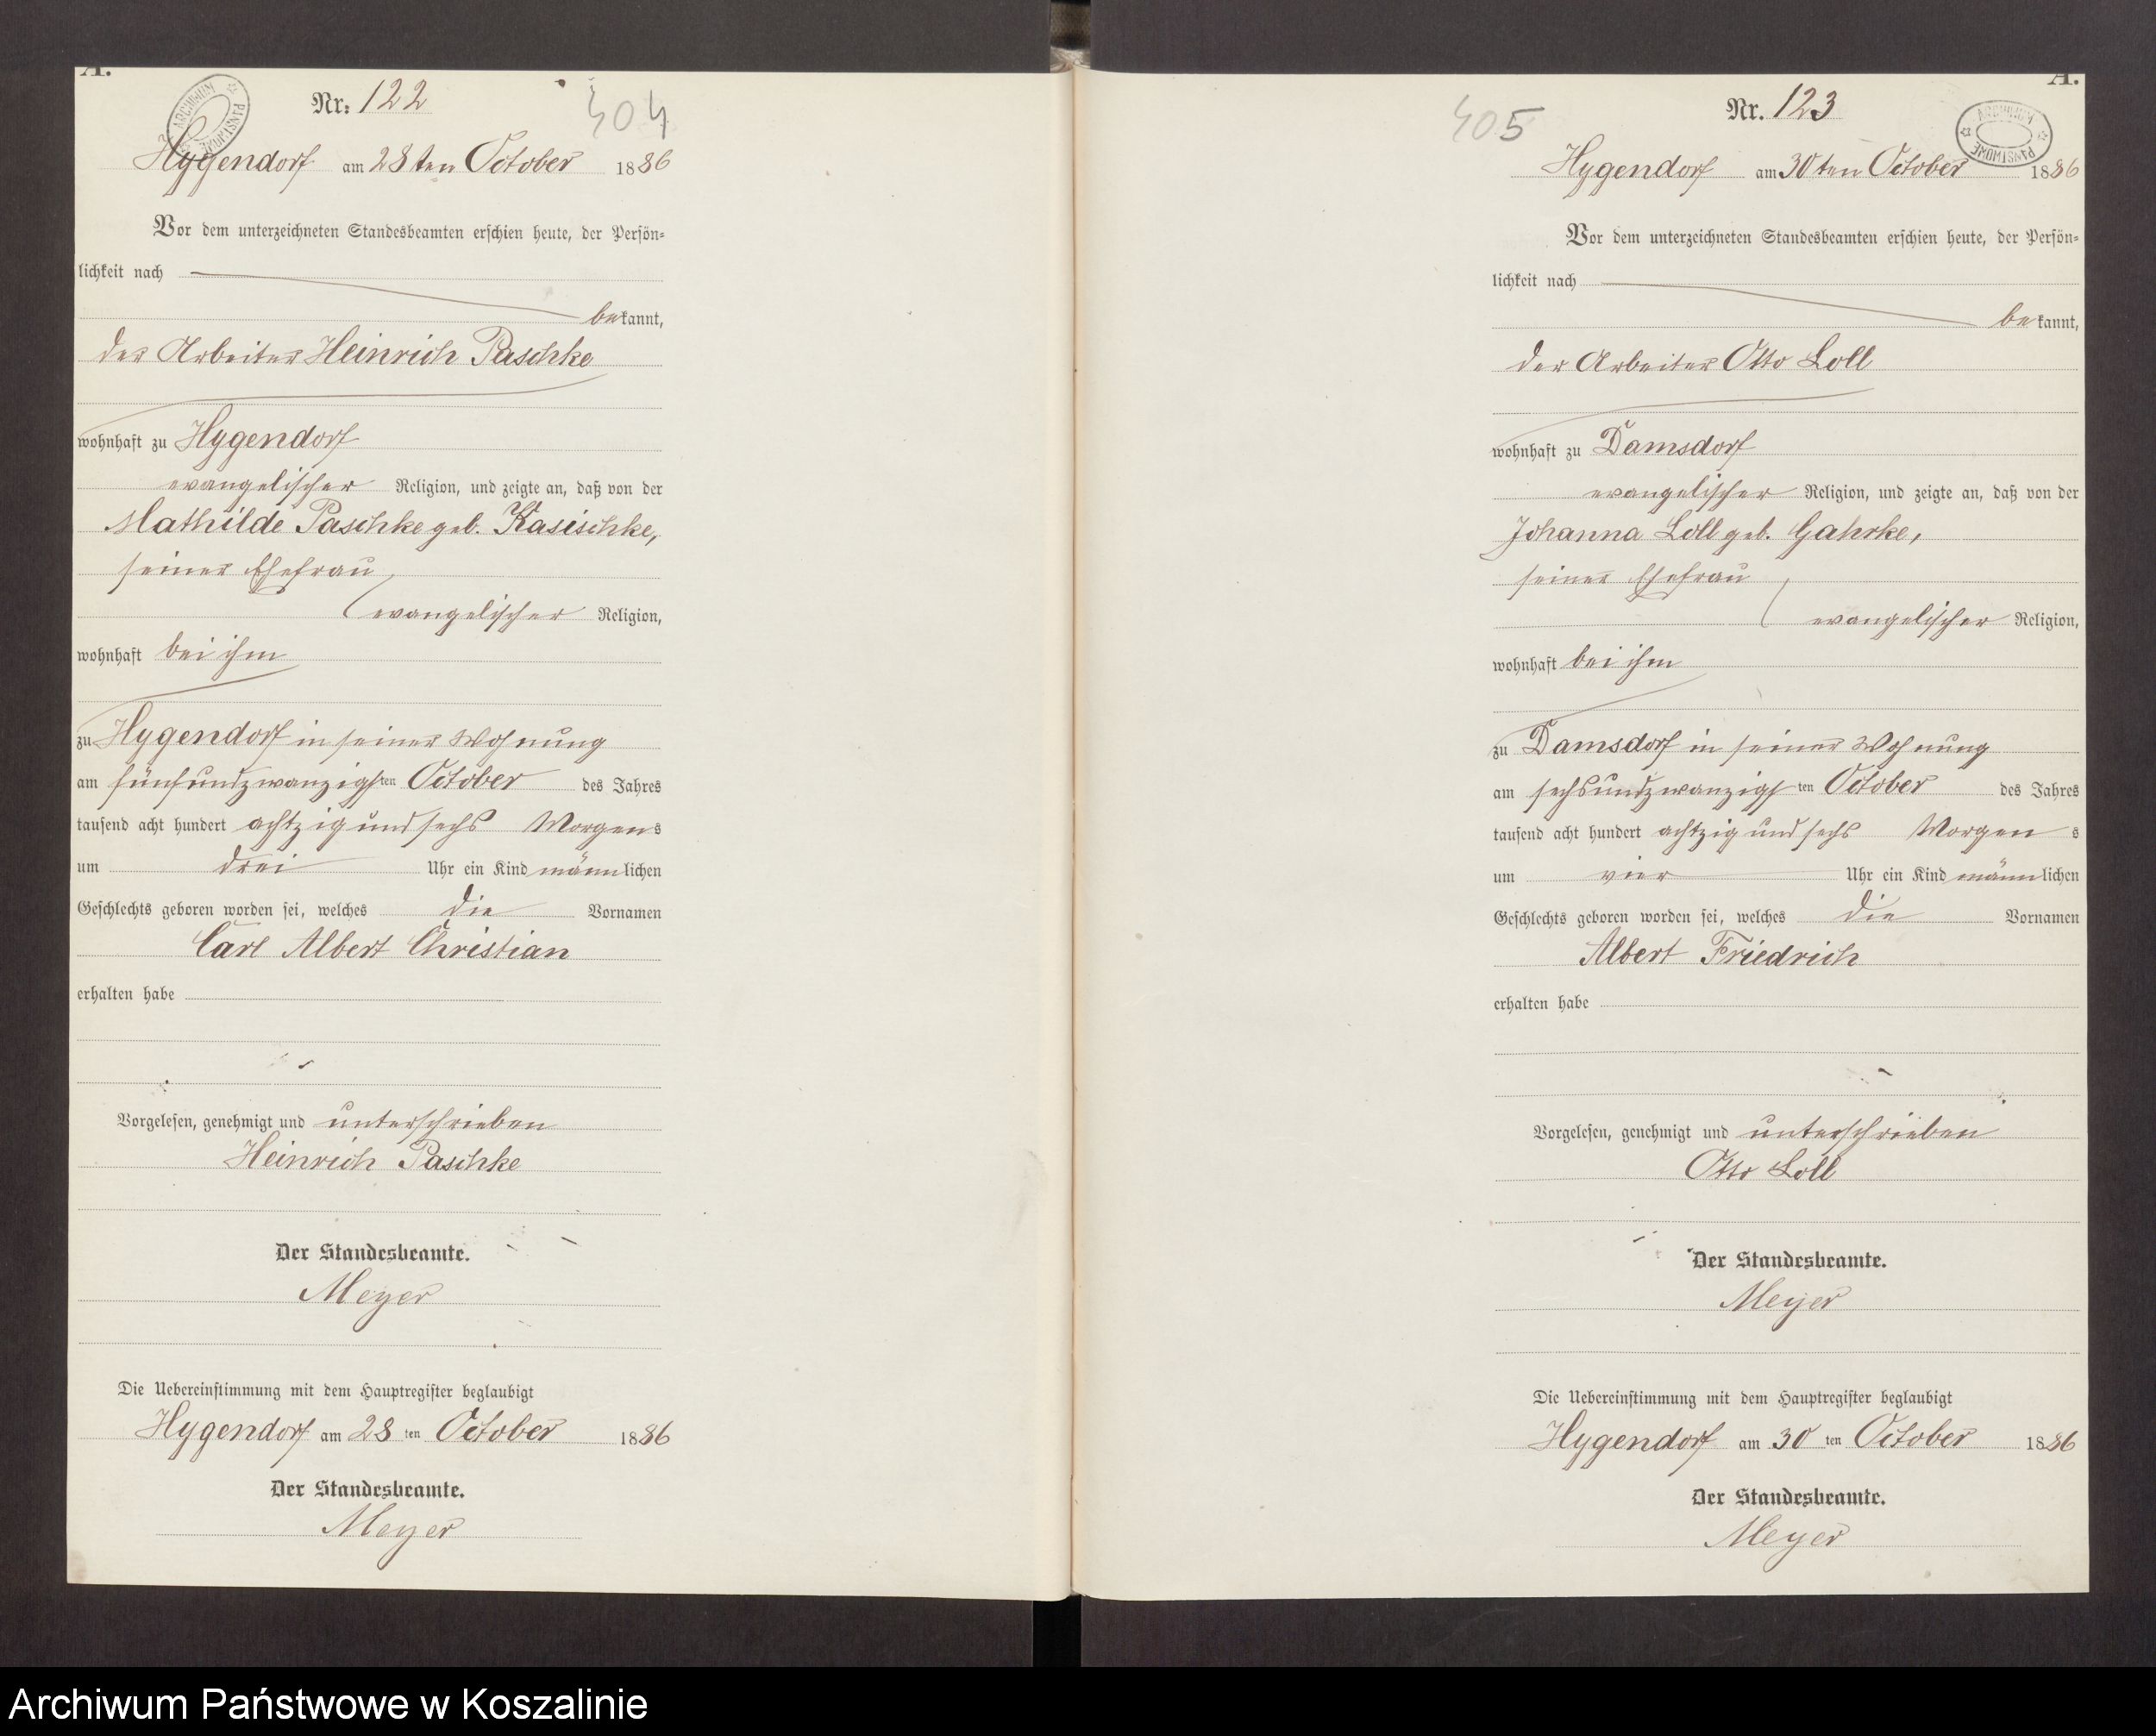 A.
Nr. 122
404
ARCHIWUM PAŃSTWOWE
Hygendorf am 28ten October 1886
Vor dem unterzeichneten Standesbeamten erschien heute, der Persön-
lichkeit nach
bekannt,
der Arbeiter Heinrich Paschke
wohnhaft zu Hygendorf
evangelischer Religion, und zeigte an, daß von der
Mathilde Paschke geb. Kasischke,
seiner Ehefrau
evangelischer Religion,
wohnhaft bei ihm
zu Hygendorf in seiner Wohnung
am fünfundzwanzigsten October des Jahres
tausend acht hundert achtzig und sechs Morgens
um drei Uhr ein Kind männlichen
Geschlechts geboren worden sei, welches die Vornamen
Carl Albert Christian
erhalten habe
Vorgelesen, genehmigt und unterschrieben
Heinrich Paschke
Der Standesbeamte.
Meyer
Die Uebereinstimmung mit dem Hauptregister beglaubigt
Hygendorf am 28 ten October 1886
Der Standesbeamte.
Meyer
A.
405
Nr. 123
ARCHIWUM PAŃSTWOWE
Hygendorf am 30ten October 1886
Vor dem unterzeichneten Standesbeamten erschien heute, der Persön-
lichkeit nach
bekannt,
der Arbeiter Otto Loll
wohnhaft zu Damsdorf
evangelischer Religion, und zeigte an, daß von der
Johanna Loll geb. Gahrke,
seiner Ehefrau
evangelischer Religion,
wohnhaft bei ihm
zu Damsdorf in seiner Wohnung
am sechsundzwanzigsten October des Jahres
tausend acht hundert achtzig und sechs Morgens
um vier Uhr ein Kind männlichen
Geschlechts geboren worden sei, welches die Vornamen
Albert Friedrich
erhalten habe
Vorgelesen, genehmigt und unterschrieben
Otto Loll
Der Standesbeamte.
Meyer
Die Uebereinstimmung mit dem Hauptregister beglaubigt
Hygendorf am 30 ten October 1886
Der Standesbeamte.
Meyer
Archiwum Państwowe w Koszalinie